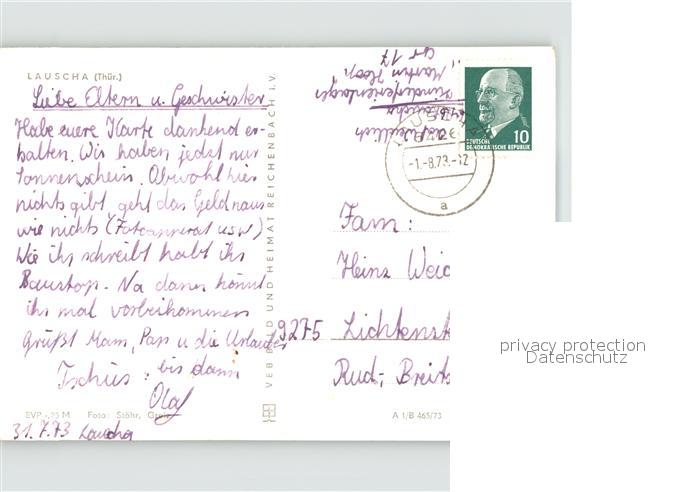 LAUSCHA (Thür.)
Liebe Eltern u. Geschwister
Habe euere Karte dankend er-
halten. Wir haben jetzt nur
Sonnenschein. Obwohl hier
nichts gibt geht das Geld naus
wie nichts (Fotoapperat usw)
Wie ihr schreibt habt ihr
Baustop. Na dann könnt
ihr mal vorbeikommen
Grüßt Mam, Pap u die Urlauber
Tschüs: bis dann
Olaf
EVP -,25 M Foto: Stöhr,
31.7.73 Lauscha
VEB BILD UND HEIMAT REICHENBACH I. V.
Kinderferienlager
"Martin Hoop"
17
10
DEUTSCHE
DEMOKRATISCHE REPUBLIK
-1.-8.73.-12
a
Fam:
Heinz Weid
9275 Lichtenst
Rud.- Breits
A 1/B 465/73
privacy protection
Datenschutz